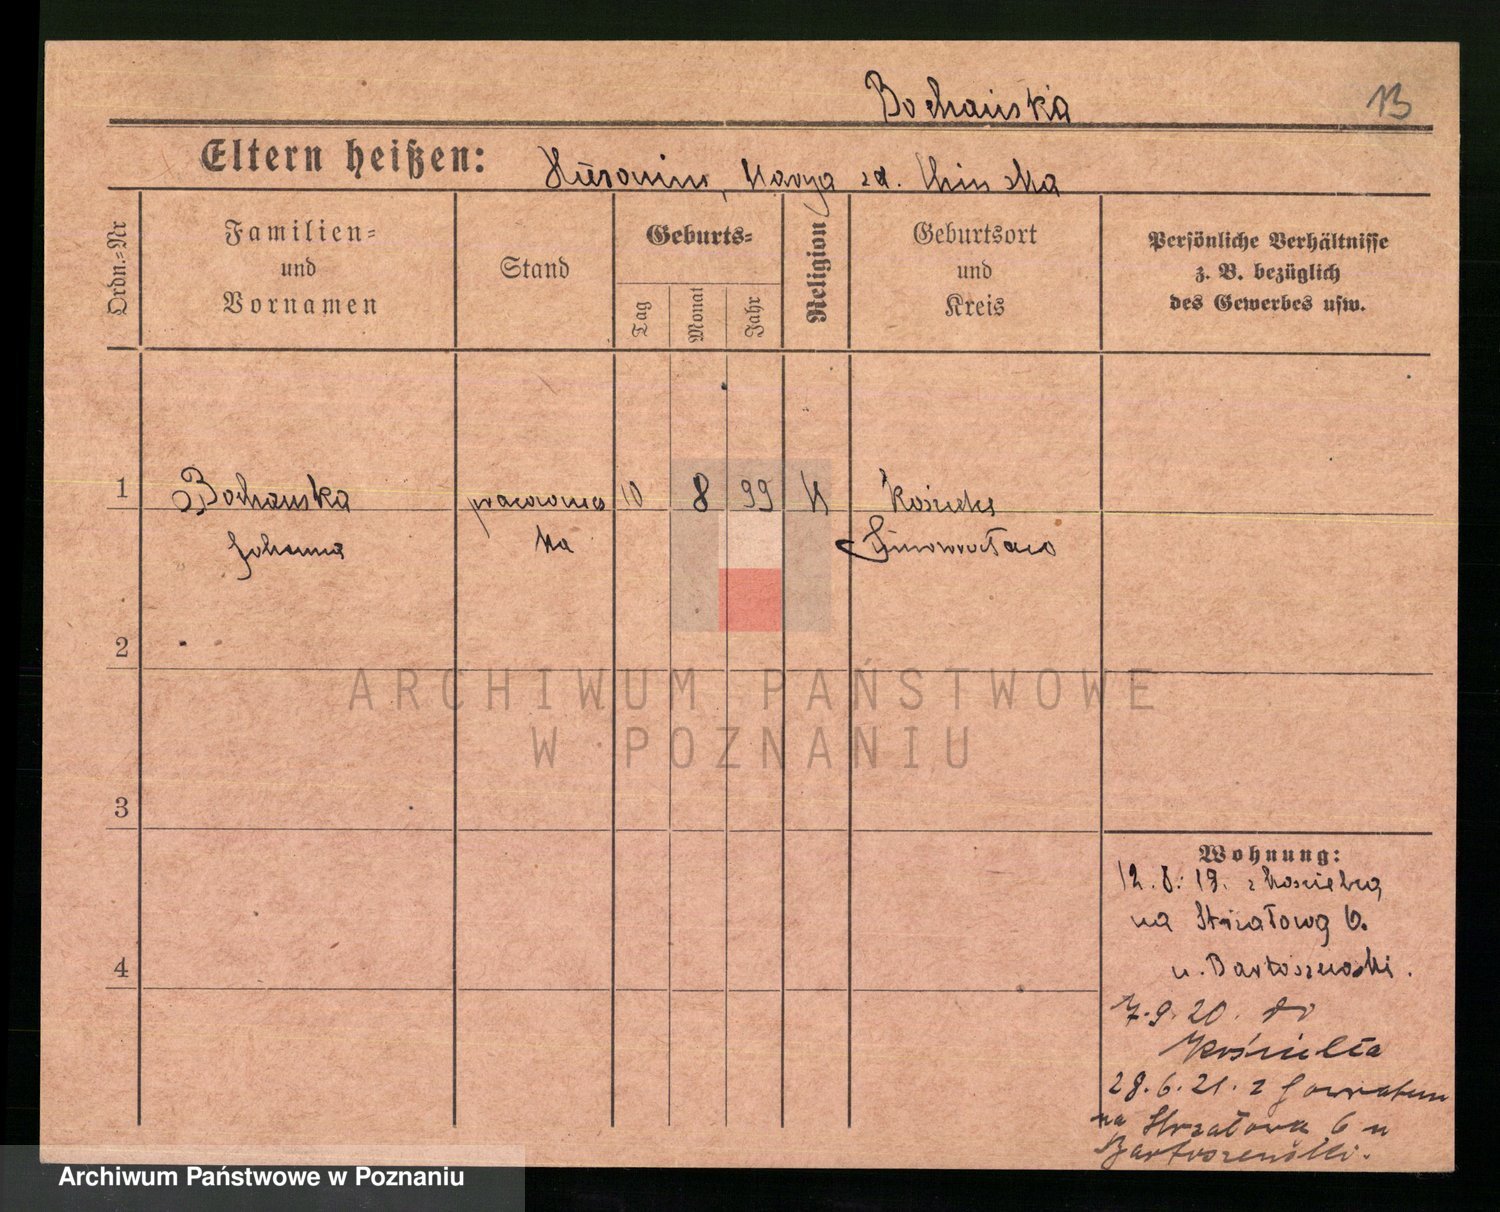 Bochańska
13
Eltern heißen: Hieronim, Marya zd. Chinska
Ordn.=Nr
Familien=
und
Vornamen
Stand
Geburts=
Tag
Monat
Jahr
Religion
Geburtsort
und
Kreis
Persönliche Verhältnisse
z. B. bezüglich
des Gewerbes usw.
1
Bochanska
Johanna
pracowni
ka
10 8 99 K
Inowrocław
2
3
4
Wohnung:
12.8.19. z
na Strzałową 6.
u. Bartoszewski.
7.9.20. do
Kościelca
28.6.21. z
na Strzałowa 6 u
Bartoszewski.
ARCHIWUM PAŃSTWOWE
W POZNANIU
Archiwum Państwowe w Poznaniu